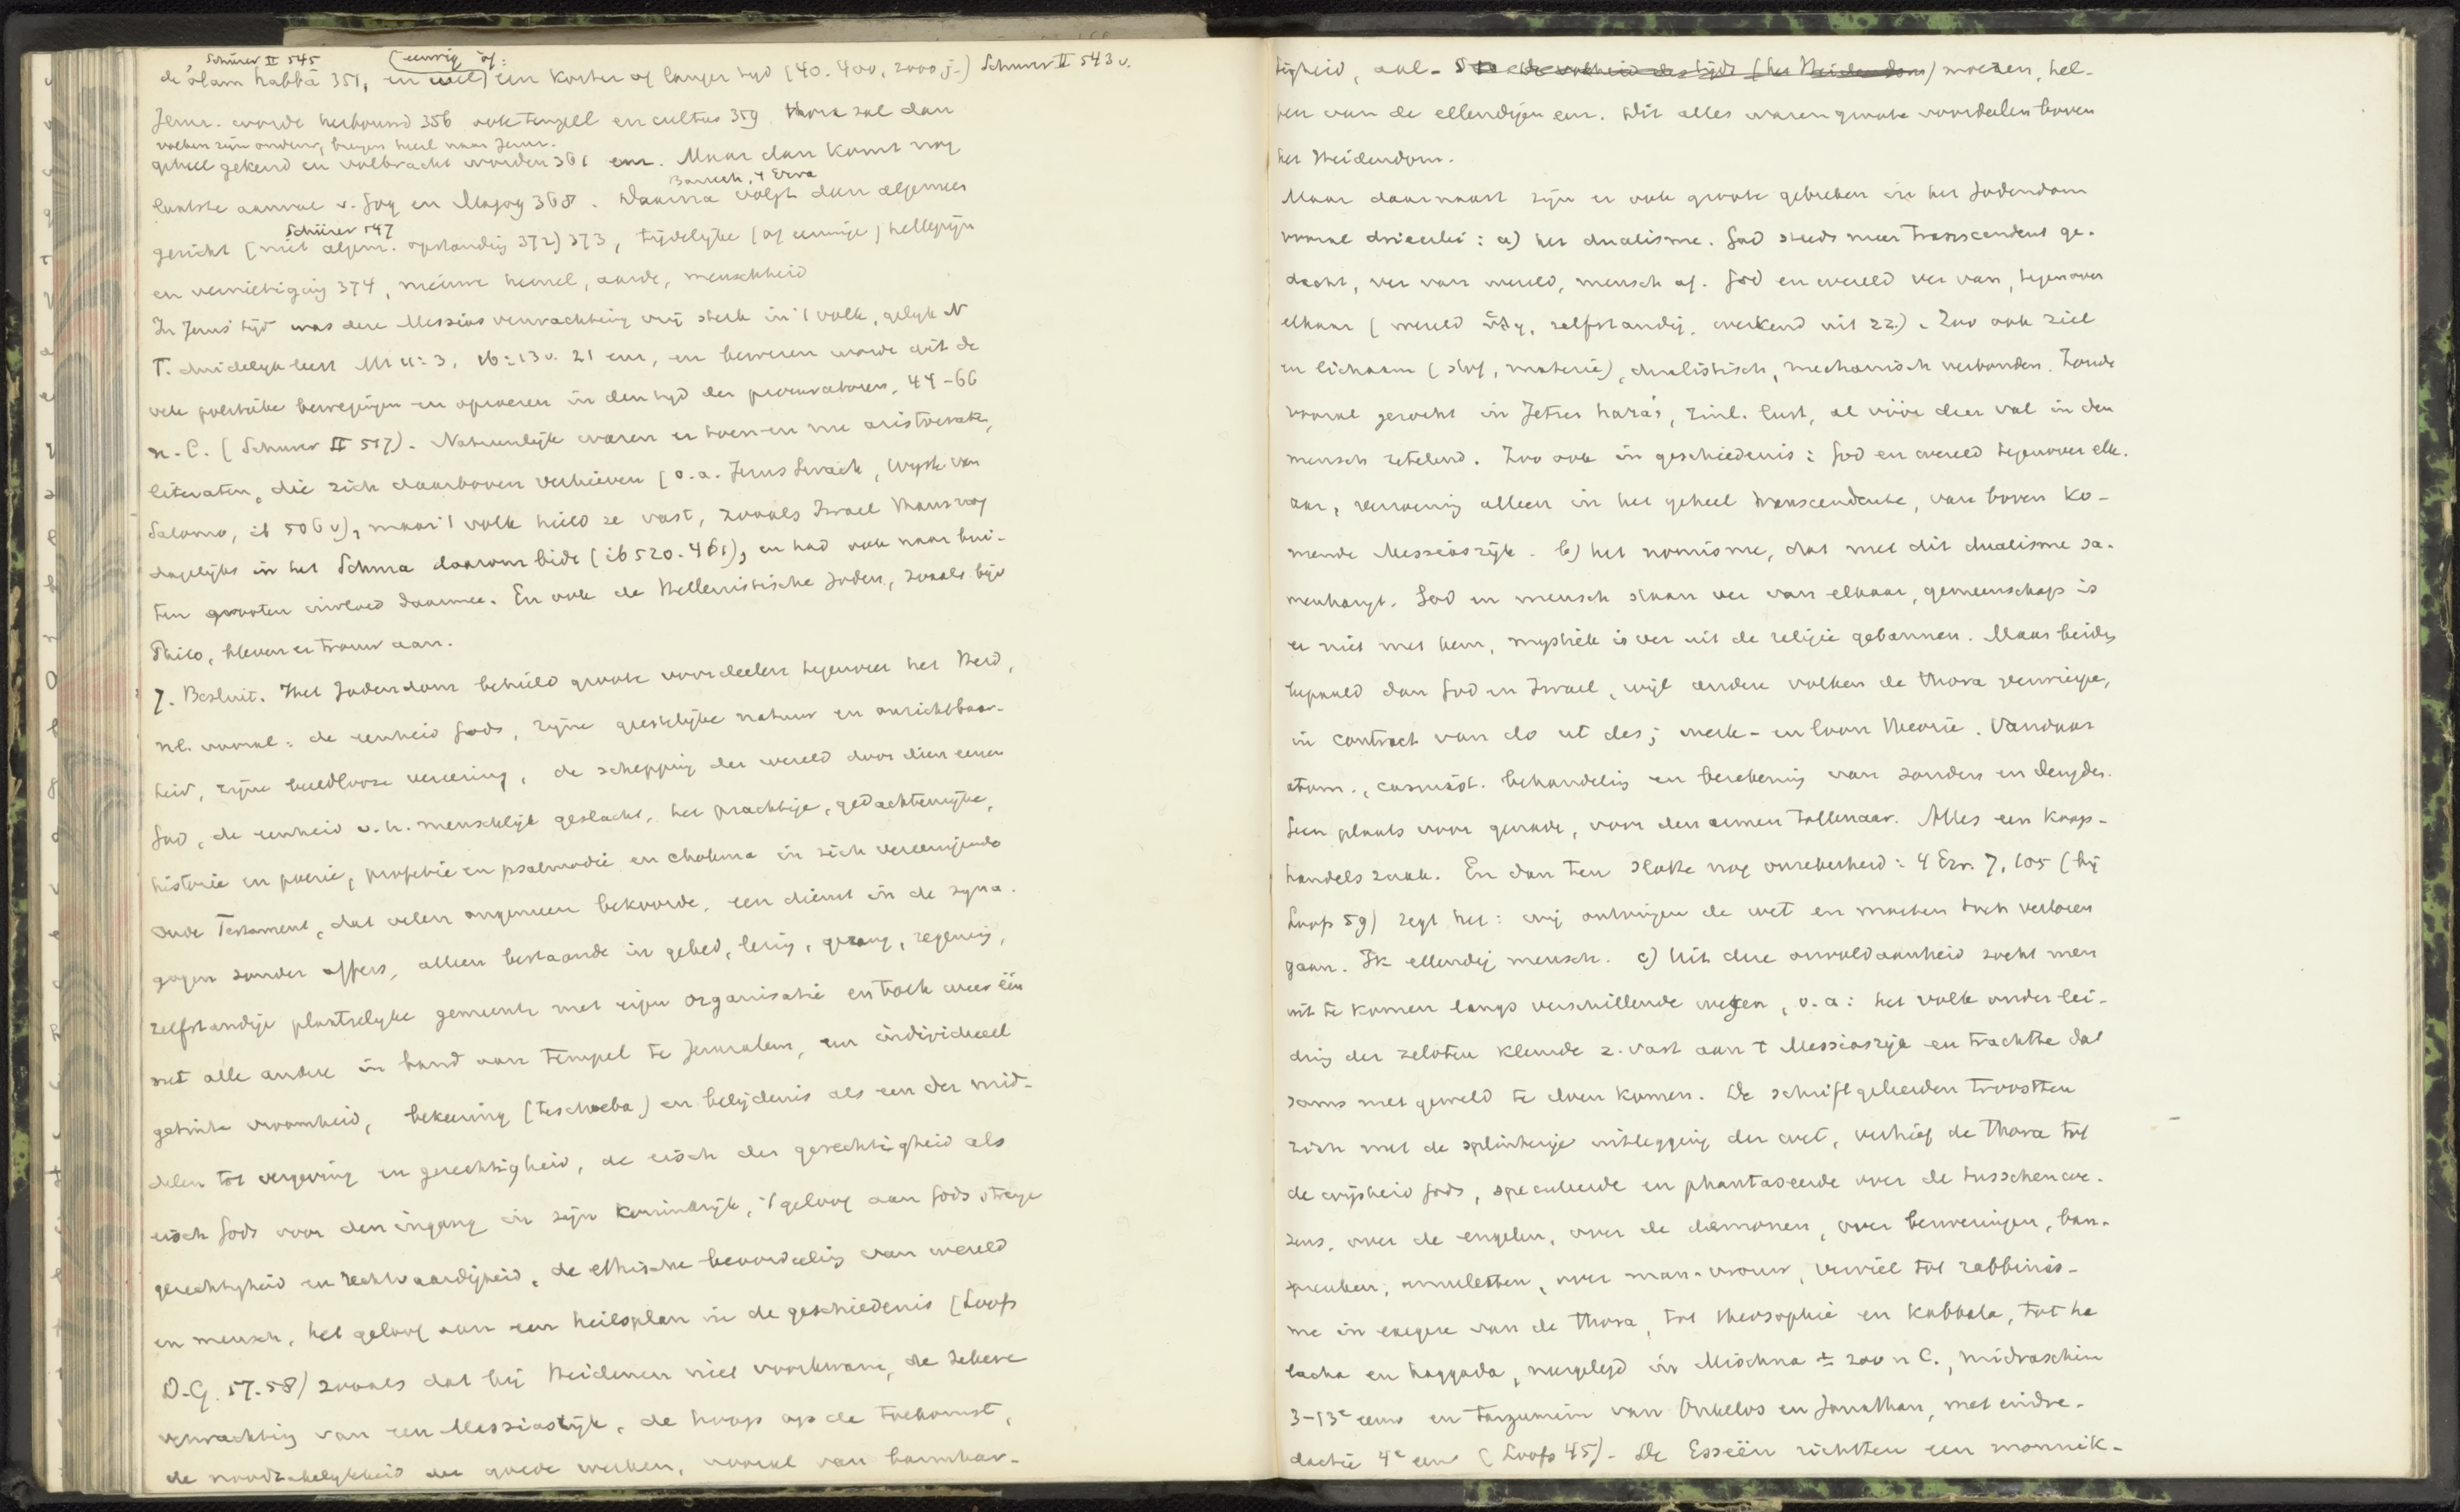 , Schürer II 545 (eeuwig of:
de olam habbā 351, en wel) een korter of langer tyd (40. 400, 2000 j.) Schürer II 543 v.
Jeruz. worde herbouwd 356 ook tempel en cultus 359 thora zal dan
volken zijn onderw, brengen heel naar Jeruz.
geheel gekend en volbracht worden 361 enz. Maar dan komt nog
Baruch, 4 Ezra
laatste aanval v. Gog en Magog 368. Daarna volgt dan algemeen
Schürer 547
gericht (met algem. opstanding 372) 373, tijdelyke (of eeuwige) hellepijn
en vernietiging 374, nieuwe hemel, aarde, menschheid
In Jezus' tijd was deze Messias verwachting vrij sterk in 't volk, gelyk N
T. duidelyk leert Mt 11:3, 16:13 v. 21 enz, en bewezen wordt uit de
vele politieke bewegingen en oproeren in den tyd der procuratoren, 44-66
n. C. (Schurer II 517). Natuurlijk waren er toen en nu aristocraten,
literaten, die zich daarboven verhieven (o.a. Jezus Sirach, Wysh. van
Salomo, ib 506 v), maar 't volk hield ze vast, zooals Israel thans nog
dagelijks in het Schma daarom bidt (ib 520. 461), en had ook naar bui-
ten grooten invloed daarmee. En ook de Hellenistische Joden, zooals bijv
Philo, bleven er trouw aan.
7. Besluit. Het Jodendom behield groote voordeelen tegenover het Heid,
nl. vooral: de eenheid Gods, zijne geestelijke natuur en onzichtbaar-
heid, zijne beeldlooze vereering, de schepping der wereld door dien eenen
God, de eenheid v. h. menschelijk geslacht, het prachtige, gedachtenrijke,
historie en poezie, profetie en psalmodie en chokma in zich vereenigende
Oude Testament, dat velen ongemeen bekoorde, een dienst in de syna-
gogen zonder offers, alleen bestaande in gebed, lezing, gezang, zegening,
zelfstandige plaatselyke gemeente met eigen organisatie en toch weer één
met alle andere in band aan tempel te Jeruzalem, een individueel
getinte vroomheid, bekeering (teschoeba) en belijdenis als een der mid-
delen tot vergeving en gerechtigheid, de eisch der gerechtigheid als
eisch Gods voor den ingang in zijn koninkrijk, 't geloof aan Gods strenge
gerechtigheid en rechtvaardigheid, de ethische beoordeeling van wereld
en mensch, het geloof aan een heilsplan in de geschiedenis (Loofs
D.G. 57-58) zooals dat bij Heidenen niet voorkwam, de zekere
verwachting van een Messiasrijk, de hoop op de toekomst,
de noodzakelykheid der goede werken, vooral van barmhar-
tigheid, aal- moezen, hel-
pen van de ellendigen enz. Dit alles waren groote voordeelen boven
het Heidendom.
Maar daarnaast zijn er ook groote gebreken in het Jodendom
vooral drieerlei: a) het dualisme. God steeds meer transcendent ge-
dacht, ver van wereld, mensch af. God en wereld ver van, tegenover
elkaar (wereld ὕλη, zelfstandig, werkend uit zz.). Zoo ook ziel
en lichaam (stof, materie), dualistisch, mechanisch verbonden. Zonde
vooral gezocht in Jetser hara's, zinl. lust, al vóór den val in den
mensch zetelend. Zoo ook in geschiedenis: God en wereld tegenover elk.
aar, verzoening alleen in het geheel transcendente, van boven ko-
mende Messiasrijk. b) het nomisme, dat met dit dualisme sa-
menhangt. God en mensch staan ver van elkaar, gemeenschap is
er niet met hem, mystiek is ver uit de religie gebannen. Maar beide,
bepaald dan God en Israel, wijl andere volken de thora verwierpen,
in contract van do ut des; werk- en loon theorie. Vandaar
atom., casuist. behandeling en berekening van zonden en deugden.
Geen plaats voor genade, voor den armen tollenaar. Alles een koop-
handels zaak. En dan ten slotte nog onzekerheid: 4 Ezr. 7, 105 (bij
Loofs 59) zegt het: wij ontvingen de wet en moeten toch verloren
gaan. Ik ellendig mensch. c) Uit deze onvoldaanheid zocht men
uit te komen langs verschillende wegen, o.a: het volk onder lei-
ding der zeloten klemde z. vast aan 't Messiasrijk en trachtte dat
soms met geweld te doen komen. De schriftgeleerden troostten
zich met de splinterige uitlegging der wet, verhief de thora tot
de wijsheid Gods, speculeerde en phantaseerde over de tusschenwe-
zens, over de engelen, over de dæmonen, over bezweringen, ban-
spreuken, amuletten, over man-vrouw, verviel tot rabbinis-
me in exegese van de thora, tot theosophie en kabbala, tot ha
lacha en haggada, neergelegd in Mischna ± 200 n C., midraschim
3-13e eeuw en targumim van Onkelos en Jonathan, met eindre-
dactie 4e eeuw (Loofs 45). De Esseën richtten een monnik-